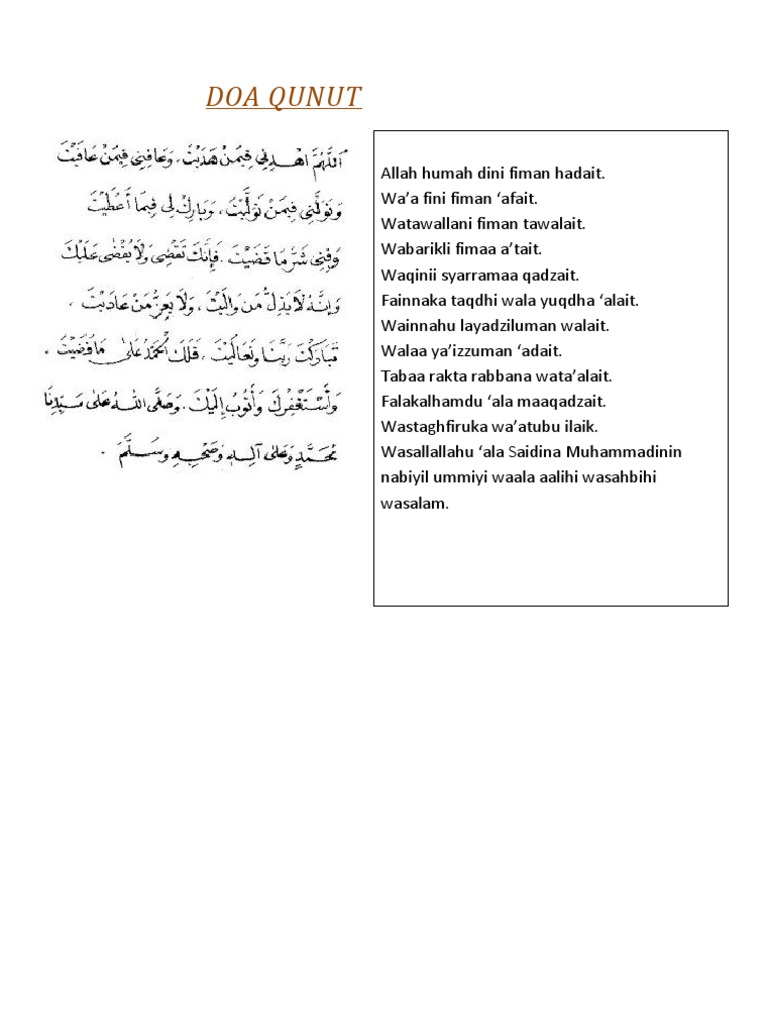 DOA QUNUT
اَللّٰهُمَّ اهْدِنِي فِيمَنْ هَدَيْتَ، وَعَافِنِي فِيمَنْ عَافَيْتَ
وَتَوَلَّنِي فِيمَنْ تَوَلَّيْتَ، وَبَارِكْ لِي فِيمَا أَعْطَيْتَ
وَقِنِي شَرَّ مَا قَضَيْتَ. فَإِنَّكَ تَقْضِى وَلَا يُقْضٰى عَلَيْكَ
وَإِنَّهُ لَا يَذِلُّ مَنْ وَالَيْتَ، وَلَا يَعِزُّ مَنْ عَادَيْتَ.
تَبَارَكْتَ رَبَّنَا وَتَعَالَيْتَ، فَلَكَ الْحَمْدُ عَلٰى مَا قَضَيْتَ.
وَأَسْتَغْفِرُكَ وَأَتُوبُ إِلَيْكَ. وَصَلَّى اللهُ عَلٰى سَيِّدِنَا
مُحَمَّدٍ وَعَلٰى آلِهِ وَصَحْبِهِ وَسَلَّمَ.
Allah humah dini fiman hadait.
Wa’a fini fiman ‘afait.
Watawallani fiman tawalait.
Wabarikli fimaa a’tait.
Waqinii syarramaa qadzait.
Fainnaka taqdhi wala yuqdha ‘alait.
Wainnahu layadziluman walait.
Walaa ya’izzuman ‘adait.
Tabaa rakta rabbana wata’alait.
Falakalhamdu ‘ala maaqadzait.
Wastaghfiruka wa’atubu ilaik.
Wasallallahu ‘ala Saidina Muhammadinin
nabiyil ummiyi waala aalihi wasahbihi
wasalam.